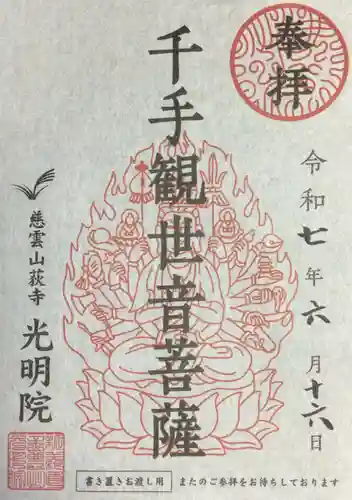 奉拝
令和七年六月十六日
千手観世音菩薩
慈雲山荻寺
光明院
書き置きお渡し用
またのご参拝をお待ちしております